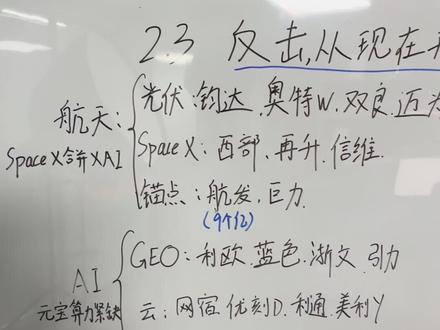 2.3 反击,从现在
航天:
SpaceX合并XAI
光伏:钧达.奥特W.双良.迈为
SpaceX:西部、再升.信维.
锚点:航发,巨力.
(9个亿)
AI
元宝算力紧缺
GEO:利欧.蓝色.浙文.引力
云:网宿.优刻D.利通.美利Y